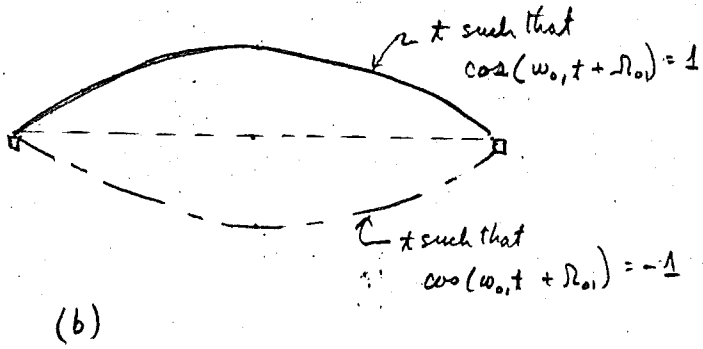 t such that
cos(ω₀₁t + Ω₀₁) = 1
t such that
cos(ω₀₁t + Ω₀₁) = -1
(b)